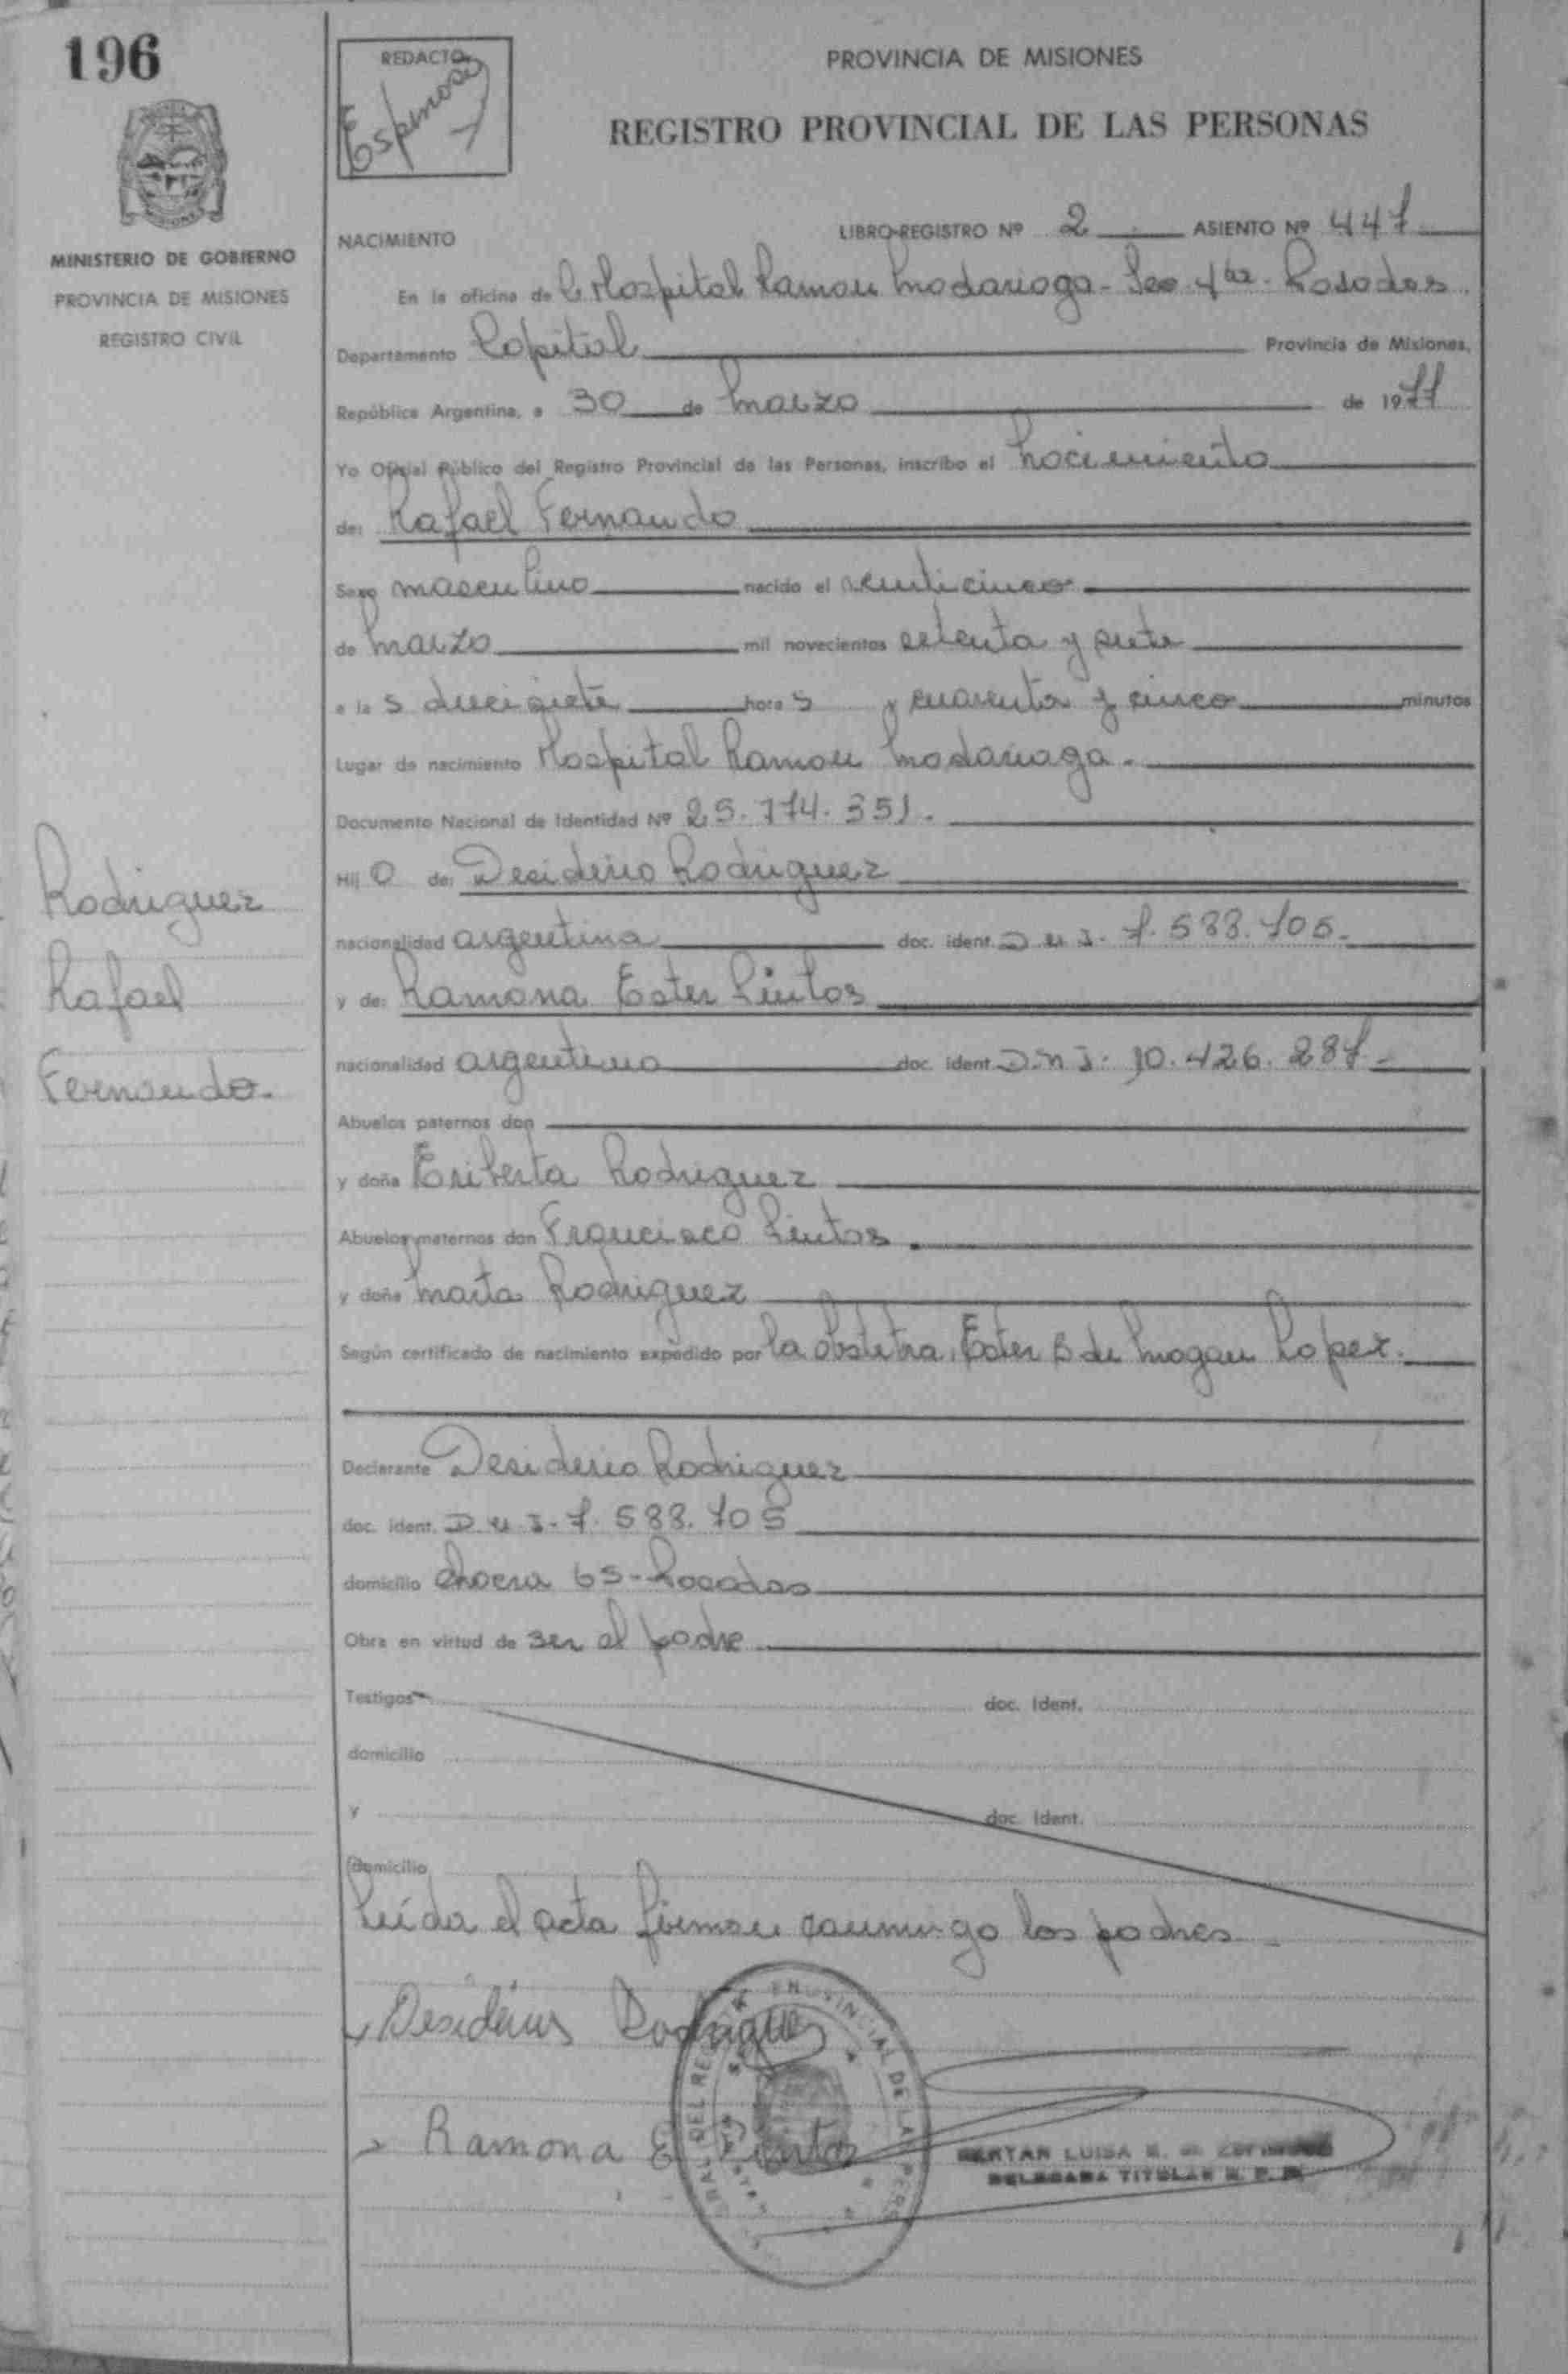 196
REDACTO
Espinosa
PROVINCIA DE MISIONES
REGISTRO PROVINCIAL DE LAS PERSONAS
MINISTERIO DE GOBIERNO
PROVINCIA DE MISIONES
REGISTRO CIVIL
NACIMIENTO
LIBRO-REGISTRO Nº 2 ASIENTO Nº 447
En la oficina de Hospital Ramon Madariaga - Sec. 4ta - Posadas.
Departamento Capital Provincia de Misiones,
República Argentina, a 30 de Marzo de 1977
Yo Oficial Público del Registro Provincial de las Personas, inscribo el Nacimiento
de: Rafael Fernando
Sexo masculino nacido el venticinco
de Marzo mil novecientos setenta y siete
a la s diecisiete hora s y cuarenta y cinco minutos
Lugar de nacimiento Hospital Ramon Madariaga.
Documento Nacional de Identidad Nº 25.774.351.
Hij o de: Desiderio Rodriguez
nacionalidad argentina doc. ident. D n I. 7.588.705.
y de: Ramona Ester Pintos
nacionalidad argentina doc. ident. D.N I. 10.426.287-
Rodriguez
Rafael
Fernando.
Abuelos paternos don
y doña Eriberta Rodriguez
Abuelos maternos don Francisco Pintos.
y doña Marta Rodriguez
Según certificado de nacimiento expedido por la obstetra, Ester B de Lopez.
Declarante Desiderio Rodriguez
doc. ident. D n I. 7.588.705
domicilio chacra 65 - Posadas
Obra en virtud de ser el padre
Testigos doc. Ident.
domicilio
y doc. Ident.
domicilio
Leída el acta firman conmigo los padres
Desiderius Rodriguez
Ramona E Pintos
LUISA
DELEGADA TITULAR R. P. P.